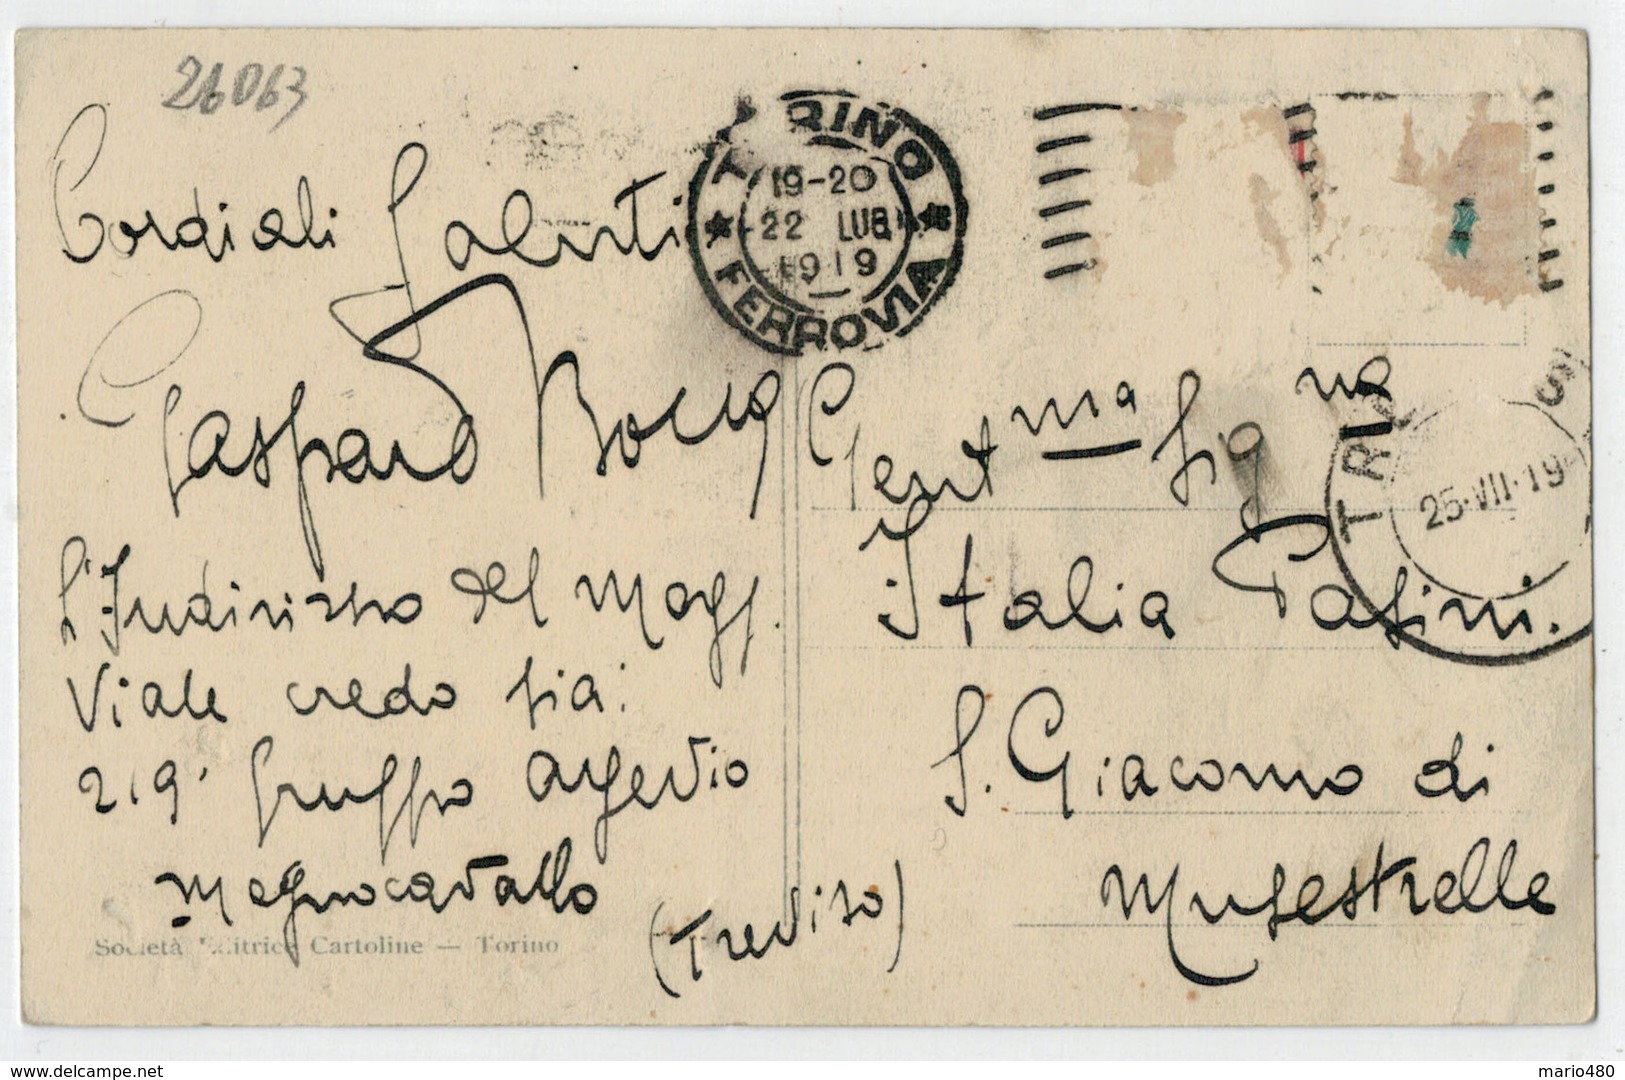 26063
Cordiali Saluti
Gaspare Bocca
L'Indirizzo del Magg.
Viale credo sia:
2,9° gruppo
Magnocavallo
Società Editrice Cartoline — Torino
TORINO
19-20
22 LUG
1919
FERROVIA
Gent ma Sig na
Italia Pasini.
S. Giacomo di
Musestrelle
(Treviso)
25.VII.19
mario480